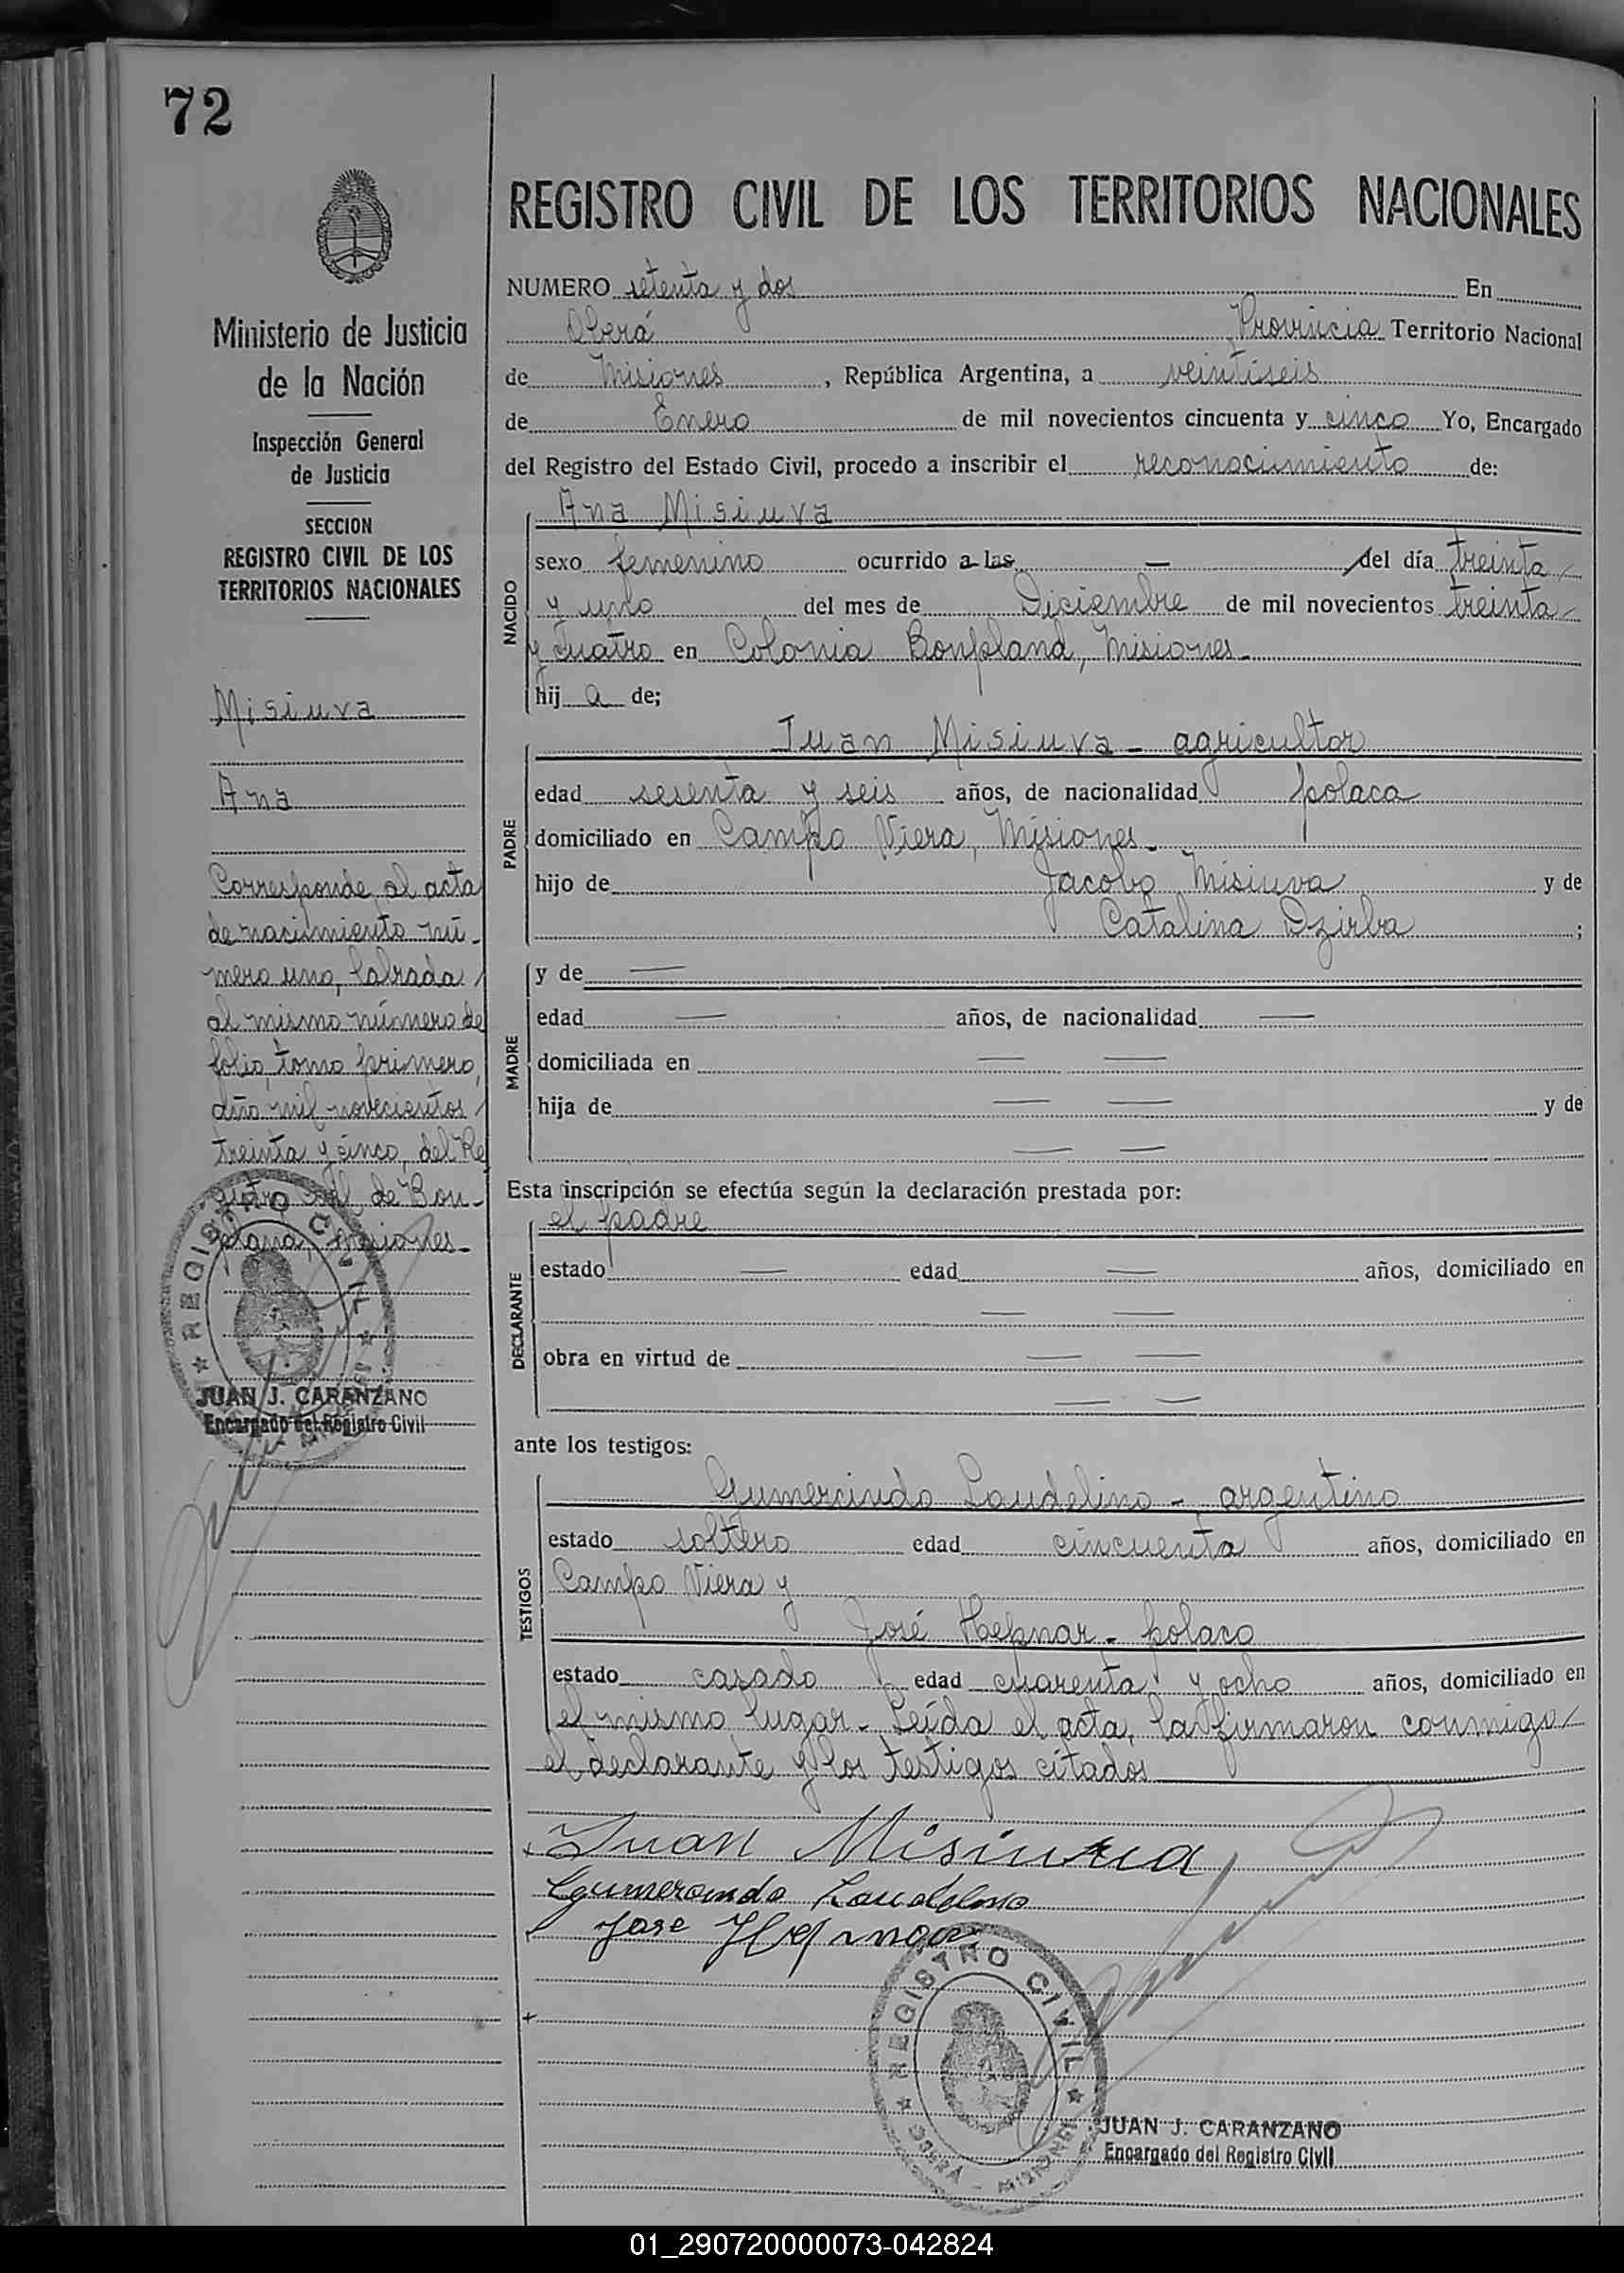 72
Ministerio de Justicia
de la Nación
Inspección General
de Justicia
SECCION
REGISTRO CIVIL DE LOS
TERRITORIOS NACIONALES
Misiuva
Ana
Corresponde al acta
de nacimiento nú-
mero uno, labrada
al mismo número de
folio, tomo primero,
año mil novecientos
treinta y cinco, del Re
gistro Civil de Bon-
pland, Misiones-
REGISTRO CIVIL
JUAN J. CARANZANO
Encargado del Registro Civil
REGISTRO CIVIL DE LOS TERRITORIOS NACIONALES
NUMERO setenta y dos En
Oberá Provincia Territorio Nacional
de Misiones, República Argentina, a veintiseis
de Enero de mil novecientos cincuenta y cinco Yo, Encargado
del Registro del Estado Civil, procedo a inscribir el reconocimiento de:
Ana Misiuva
NACIDO
sexo femenino ocurrido a las — del día treinta
y uno del mes de Diciembre de mil novecientos treinta
y cuatro en Colonia Bonpland, Misiones-
hij a de;
Juan Misiuva - agricultor
PADRE
edad sesenta y seis años, de nacionalidad polaca
domiciliado en Campo Viera, Misiones-
hijo de Jacobo Misiuva y de
Catalina Dzirba ;
MADRE
y de —
edad — años, de nacionalidad —
domiciliada en — —
hija de — — y de
— —
Esta inscripción se efectúa según la declaración prestada por:
el padre
DECLARANTE
estado — edad — años, domiciliado en
— —
obra en virtud de — —
— —
ante los testigos:
Gumercindo Laudelino - argentino
TESTIGOS
estado soltero edad cincuenta años, domiciliado en
Campo Viera y
José Hepnar - polaco
estado casado edad cuarenta y ocho años, domiciliado en
el mismo lugar - Leída el acta, la firmaron conmigo
el declarante y los testigos citados
Juan Misiuva
Gumercindo Laudelino
Jose Hepnar
REGISTRO CIVIL
OBERÁ - MISIONES
JUAN J. CARANZANO
Encargado del Registro Civil
01_290720000073-042824